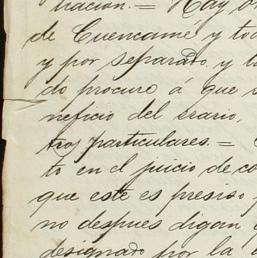 tracion. = Hay
de Cuencamé y to
y por separado, y
do procuro á que
neficio del erario,
tros particulares. =
to en el juicio de co
que este es presiso
no despues digan
designado por la